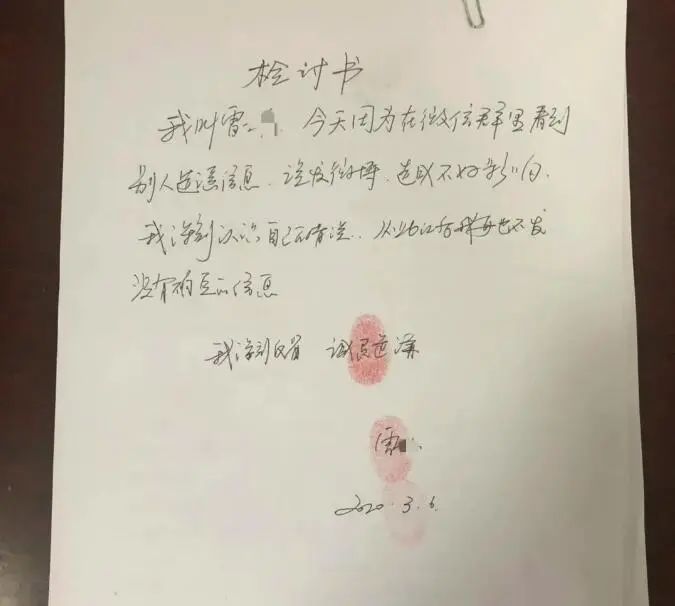 检讨书
我叫雷 今天因为在微信群里看到
别人造谣信息、误发微博,造成不好影响.
我深刻认识自己的错误.从此以后我再也不发
没有确定的信息
我深刻反省 诚恳道歉
雷
2020.3.6.